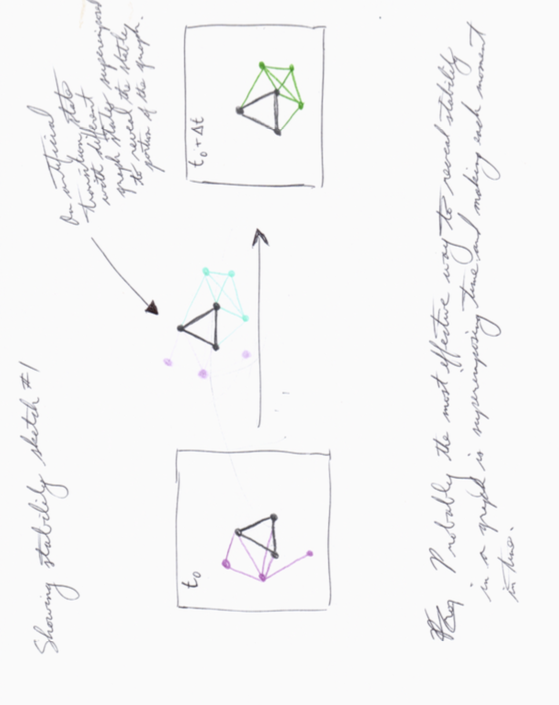 Showing stability sketch #1
t₀
An artificial
transition state
with different
graph states superimposed
to reveal the stable
portion of the graph.
t₀+Δt
Probably the most effective way to reveal stability
in a graph is superimposing time and making each moment
in time.